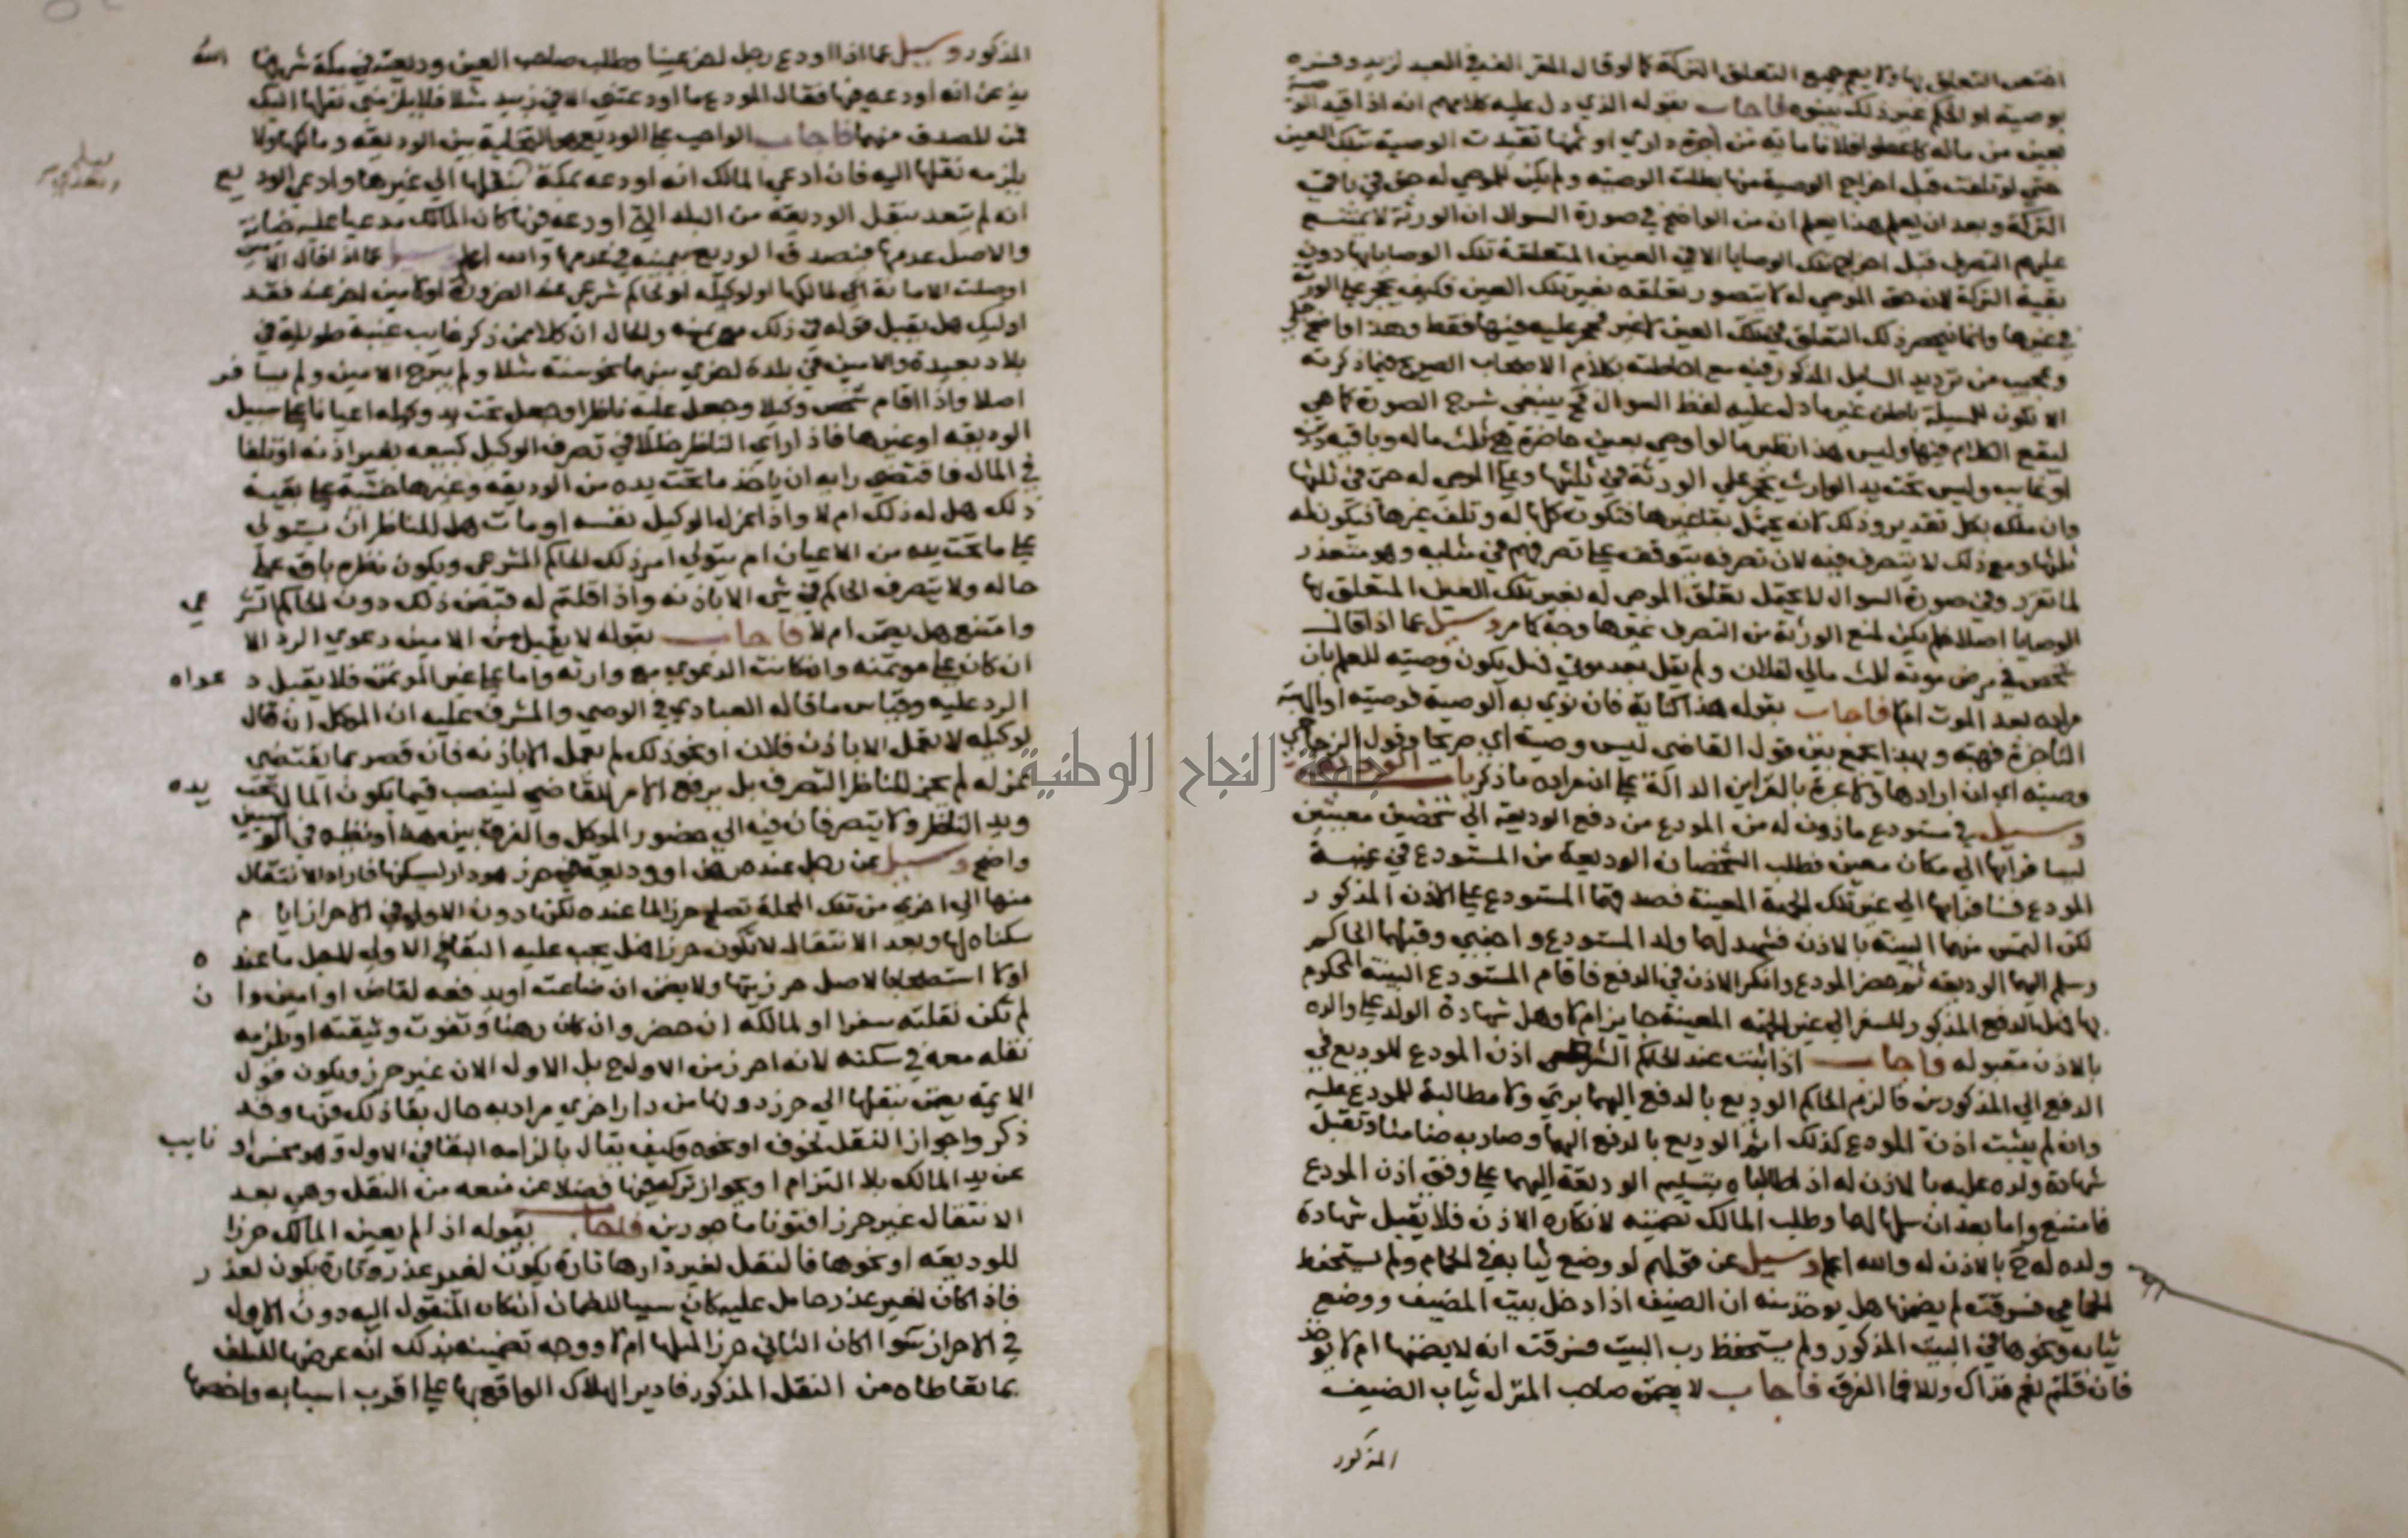 اختص التعلق بها ولا يعم جميع التعلق التركة كما لو قال المقر الف في العبد لزيد وفسره
بوصية او الحكم غير ذلك بينوه فاجاب بقوله الذي دل عليه كلامهم انه اذا قيد الوصية
بعين من ماله كاعطوا فلانا ماية من اجرة داري او ثمنها تقيدت الوصية بتلك العين
حتى لو تلفت قبل اخراج الوصية منها بطلت الوصية ولم يكن للموصى له حق في باقي
التركة وبعد ان يعلم هذا يعلم ان من الواضح في صورة السوال ان الورثة لا يمتنع
عليهم التصرف قبل اخراج تلك الوصايا الا في العين المتعلقة تلك الوصايا بها دون
بقية التركة لان حق الموصى له لا يتصور تعلقه بغير تلك العين فكيف يحجر على الورثة
في غيرها وانما ينحصر ذلك التعلق في تلك العين لا غير فحجر عليه فيها فقط وهذا واضح جلي
وعجيب من ترديد السايل المذكور فيه مع احاطته بكلام الاصحاب الصريح فيما ذكرته
الا تكون المسيلة باطن غير ما دل عليه لفظ السوال فحينئذ ينبغي شرح الصورة كما هي
ليقع الكلام فيها وليس هذا نظير ما لو اوصى بعين حاضرة هي ثلث ماله وباقيه دين
او غايب وليس تحت يد الوارث يحجر على الورثة في ثلثيها وعلى الموصى له حتى في ثلثها
وان ملكه بكل تقدير وذلك لانه يحتمل بقا غيرها فتكون كلها له وتلف غيرها فيكون له
ثلثها ومع ذلك لا يتصرف فيه لان تصرفه يتوقف على تصرفهم في مثليه وهو متعذر
لما تقرر وفي صورة السوال لا يحتمل تعلق الموصى له بغير تلك العين المتعلق بها
الوصايا اصلا فلم يكن لمنع الورثة من التصرف في غيرها وجه كما مر وسئل عما اذا قال
شخص في مرض موته ثلث مالي لفلان ولم يقل بعد موتي فهل يكون وصية للعلم بان
مراده بعد الموت ام لا فاجاب بقوله هذا كناية فان نوى به الوصية فوصية او الهبة
الناجزة فهبة وبهذا يجمع بين قول القاضي ليس وصية اي صريحا وقول الزجاجي
وصية اي ان ارادها ولا عبرة بالقراين الدالة على ان مراده ما ذكر باب الوديعة
وسئل في مستودع ماذون له من المودع من دفع الوديعة الى شخصين معينين
ليسافرا بها الى مكان معين فطلب الشخصان الوديعة من المستودع في غيبة
المودع فسافرا بها الى غير تلك الجهة المعينة فصدقهما المستودع على الاذن المذكور
لكن التمس منهما البينة بالاذن فشهد لهما ولد المستودع واجنبي وقبلهما الحاكم
وسلم اليهما الوديعة ثم حضر المودع وانكر الاذن في الدفع فاقام المستودع البينة المحكوم
بها فهل الدفع المذكور للسفر الى غير الجهة المعينة جايز ام لا وهل شهادة الولد على والده
بالاذن مقبولة فاجاب اذا ثبت عند الحاكم الشرعي اذن المودع للوديع في
الدفع الى المذكورين فالزم الحاكم الوديع بالدفع اليهما بري ولا مطالبة للمودع عليه
وان لم يثبت اذن المودع كذلك اثم الوديع بالدفع اليهما وصار به ضامنا وتقبل
شهادة ولده عليه بالاذن له اذا طالباه بتسليم الوديعة اليهما على وفق اذن المودع
فامتنع واما بعد ان سلمها لهما وطلب المالك تضمينه لانكاره الاذن فلا يقبل شهادة
ولده له ح بالاذن له والله اعلم وسئل عن قولهم لو وضع ثيابه في الحمام ولم يستحفظ
الحمامي فسرقت لم يضمنها هل يوخذ منه ان الضيف اذا دخل بيت المضيف ووضع
ثيابه ونحوها في البيت المذكور ولم يستحفظ رب البيت فسرقت انه لا يضمنها ام لا يوخذ
فان قلتم نعم فذاك والا فما الفرق فاجاب لا يضمن صاحب المنزل ثياب الضيف
المذكور
المذكور وسئل عما اذا اودع رجل اخر عينا وطلب صاحب العين وديعته في مكة شرفها الله
يدعى انه اودعه فيها فقال المودع ما اودعتني الا في زبيد مثلا فلا يلزمني نقلها اليك
فمن المصدق منهما فاجاب الواجب على الوديع هو التخلية بين الوديعة ومالكها ولا
يلزمه نقلها اليه فان ادعى المالك انه اودعه بمكة فنقلها الى غيرها وادعى الوديع
انه لم يتعد بنقل الوديعة من البلد التي اودعه فيها كان المالك مدعيا عليه خيانة
والاصل عدمها فيصدق الوديع بيمينه في عدمها والله اعلم وسئل عما اذا قال الامين
اوصلت الامانة الى مالكها او لوكيله او لحاكم شرعي عند الضرورة او لامين اخر عند فقد
اوليك هل يقبل قوله في ذلك مع يمينه والحال ان كلا ممن ذكر غايب غيبة طويلة في
بلاد بعيدة والامين في بلدة اخرى بينهما نحو سنة مثلا ولم يبرح الامين ولم يسافر
اصلا واذا اقام شخص وكيلا وجعل عليه ناظرا وجعل تحت يد وكيله اعيانا على سبيل
الوديعة او غيرها فاذا راى الناظر خللا في تصرف الوكيل كبيعه بغير اذنه او تلفا
في المال فاقتضى رايه ان ياخذ ما تحت يده من الوديعة وغيرها خشية على بقية
ذلك هل له ذلك ام لا واذا عزل الوكيل نفسه او مات هل للناظر ان يستولى
على ما تحت يده من الاعيان ام يتولى امر ذلك الحاكم الشرعي ويكون نظره باق على
حاله ولا يتصرف الحاكم في شي الا باذنه واذا قلتم له قبض ذلك دون الحاكم الشرعي
وامتنع هل يضمن ام لا فاجاب بقوله لا يقبل من الامين دعوى الرد الا
ان كان على موتمنه وان كانت الدعوى مع وارثه واما على غير الموتمن فلا يقبل دعواه
الرد عليه وقياس ما قاله العبادي في الوصي والمشرف عليه ان الموكل ان قال
لوكيله لا تعمل الا باذن فلان او نحو ذلك لم يعمل الا باذنه فان قصر بما يقتضي
عزله لم يجز للناظر التصرف بل يرفع الامر للقاضي لينصب قيما يكون المال تحت يده
ويد الناظر ولا يتصرفان فيه الى حضور الموكل والفرق بين هذا ونظيره في الوصي
واضح وسئل عن رجل عنده رهن او وديعة في حرز هو دار يسكنها فاراد الانتقال
منها الى اخرى من تلك المحلة تصلح حرزا لما عنده لكن دون الاولى في الاحراز ايام
سكناه لها وبعد الانتقال لا تكون حرزا هل يجب عليه البقا في الاولى لاجل ما عنده
او لا استصحابا لاصل حرزيتها ولا يضمن ان ضاعت او يدفعه لقاض او امين وان
لم تكن نقلته سفرا او لمالكه ان حضر وان كان رهنا وتفوت وثيقته او يلزمه
نقله معه في سكنه لانه احرز من الاول ح بل الاول الان غير حرز ويكون قول
الايمة يضمن بنقلها الى حرز دونها من دار اخرى مرادبه حال بقا ذلك فيها وقد
ذكروا جواز النقل لخوف او نحوه وكيف يقال بالزامه البقا في الاول وهو محسن او نايب
عن يد المالك بلا التزام او بجواز تركه فيها فضلا عن منعه من النقل وهي بعد
الانتقال غير حرز افتونا ماجورين فاجاب بقوله اذا لم يعين المالك حرزا
للوديعة او نحوها فالنقل لغير دارها تارة يكون لغير عذر وتارة يكون لعذر
فاذا كان لغير عذر حامل عليه كان سببا للضمان ان كان المنقول اليه دون الاول
في الاحراز سوا اكان الثاني حرزا لمثلها ام لا ووجه تضمينه بذلك انه عرضها للتلف
بما تعاطاه من النقل المذكور فادير الهلاك الواقع بها على اقرب اسبابه واخصها
جامعة النجاح الوطنية